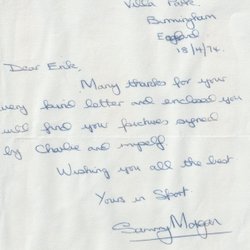 Villa Park
Birmingham
England
18/4/74.
Dear Erik,
Many thanks for your
very kind letter and enclosed you
will find your pictures signed
by Charlie and myself
Wishing you all the best
Yours in Sport
Sammy Morgan